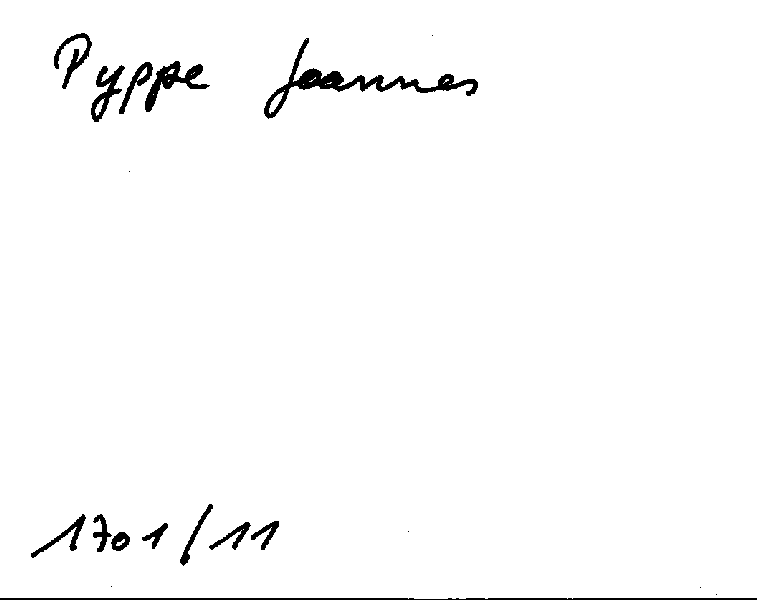 Pyppe Joannes
1701/11